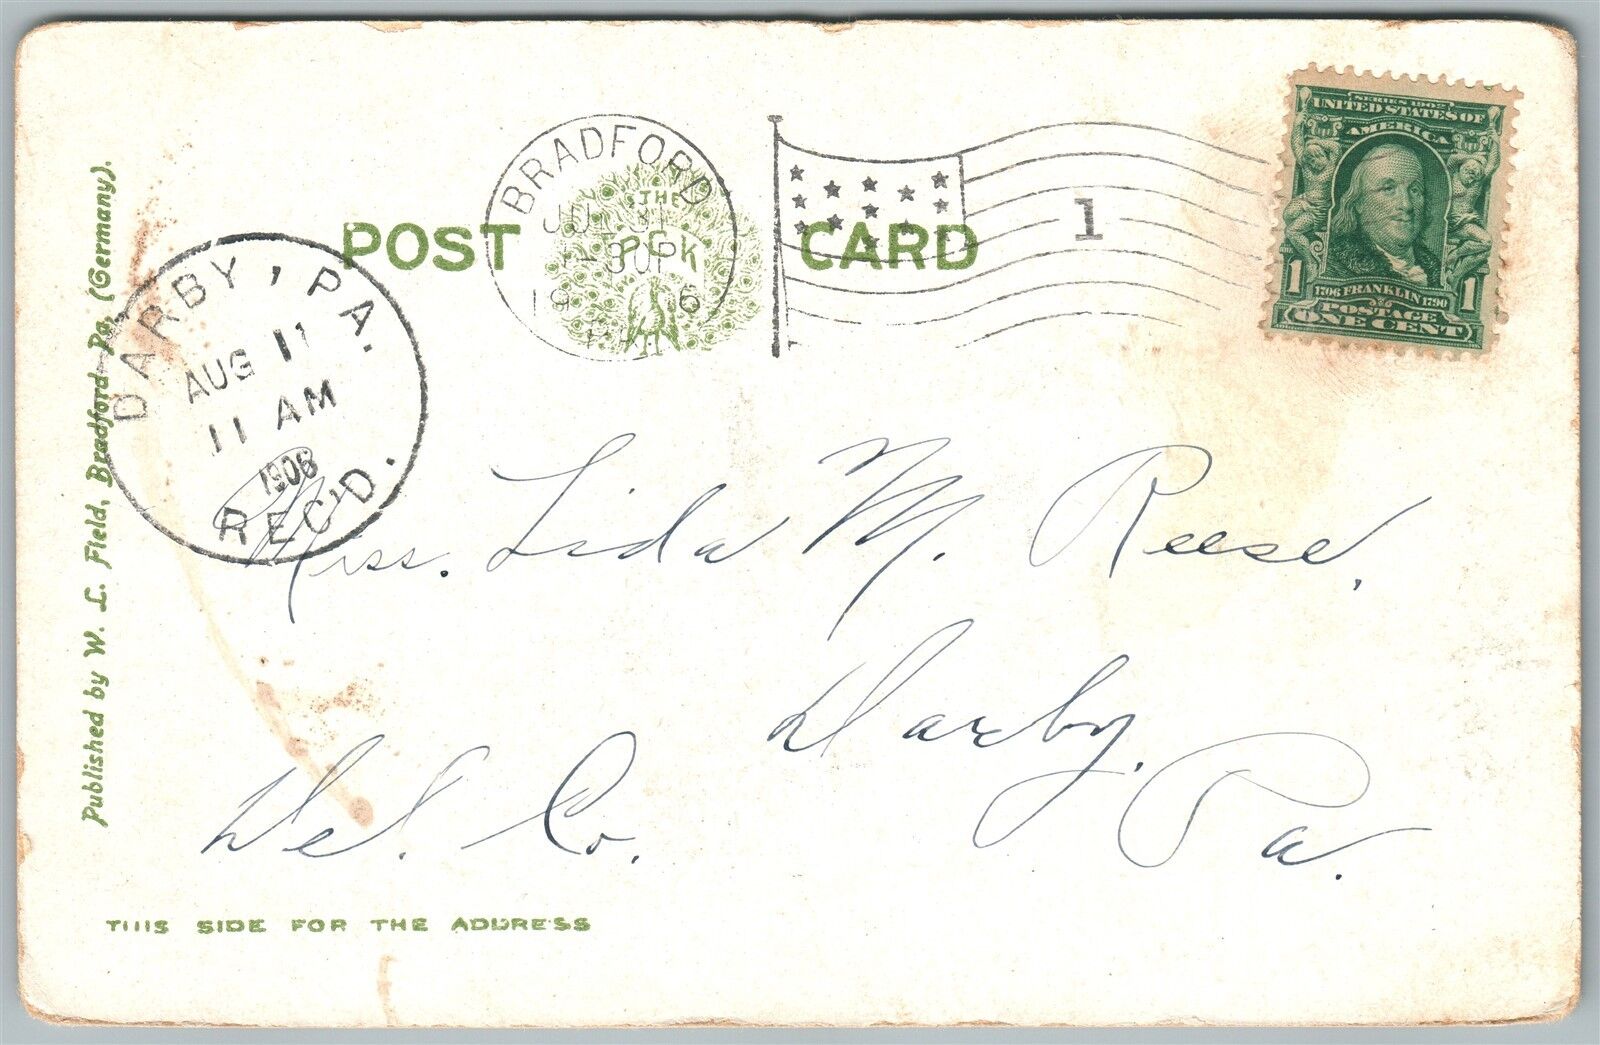 SERIES 1902
UNITED STATES OF
AMERICA
1 1706 FRANKLIN 1790 1
POSTAGE
ONE CENT
BRADFORD
JUL 31
30P
19 6
1
POST CARD
THE
PCK
DARBY, PA.
AUG 11
11 AM
1906
REC'D.
Published by W. L. Field, Bradford Pa. (Germany).
Miss. Lida M. Reese,
Darby,
Del. Co. Pa.
THIS SIDE FOR THE ADDRESS